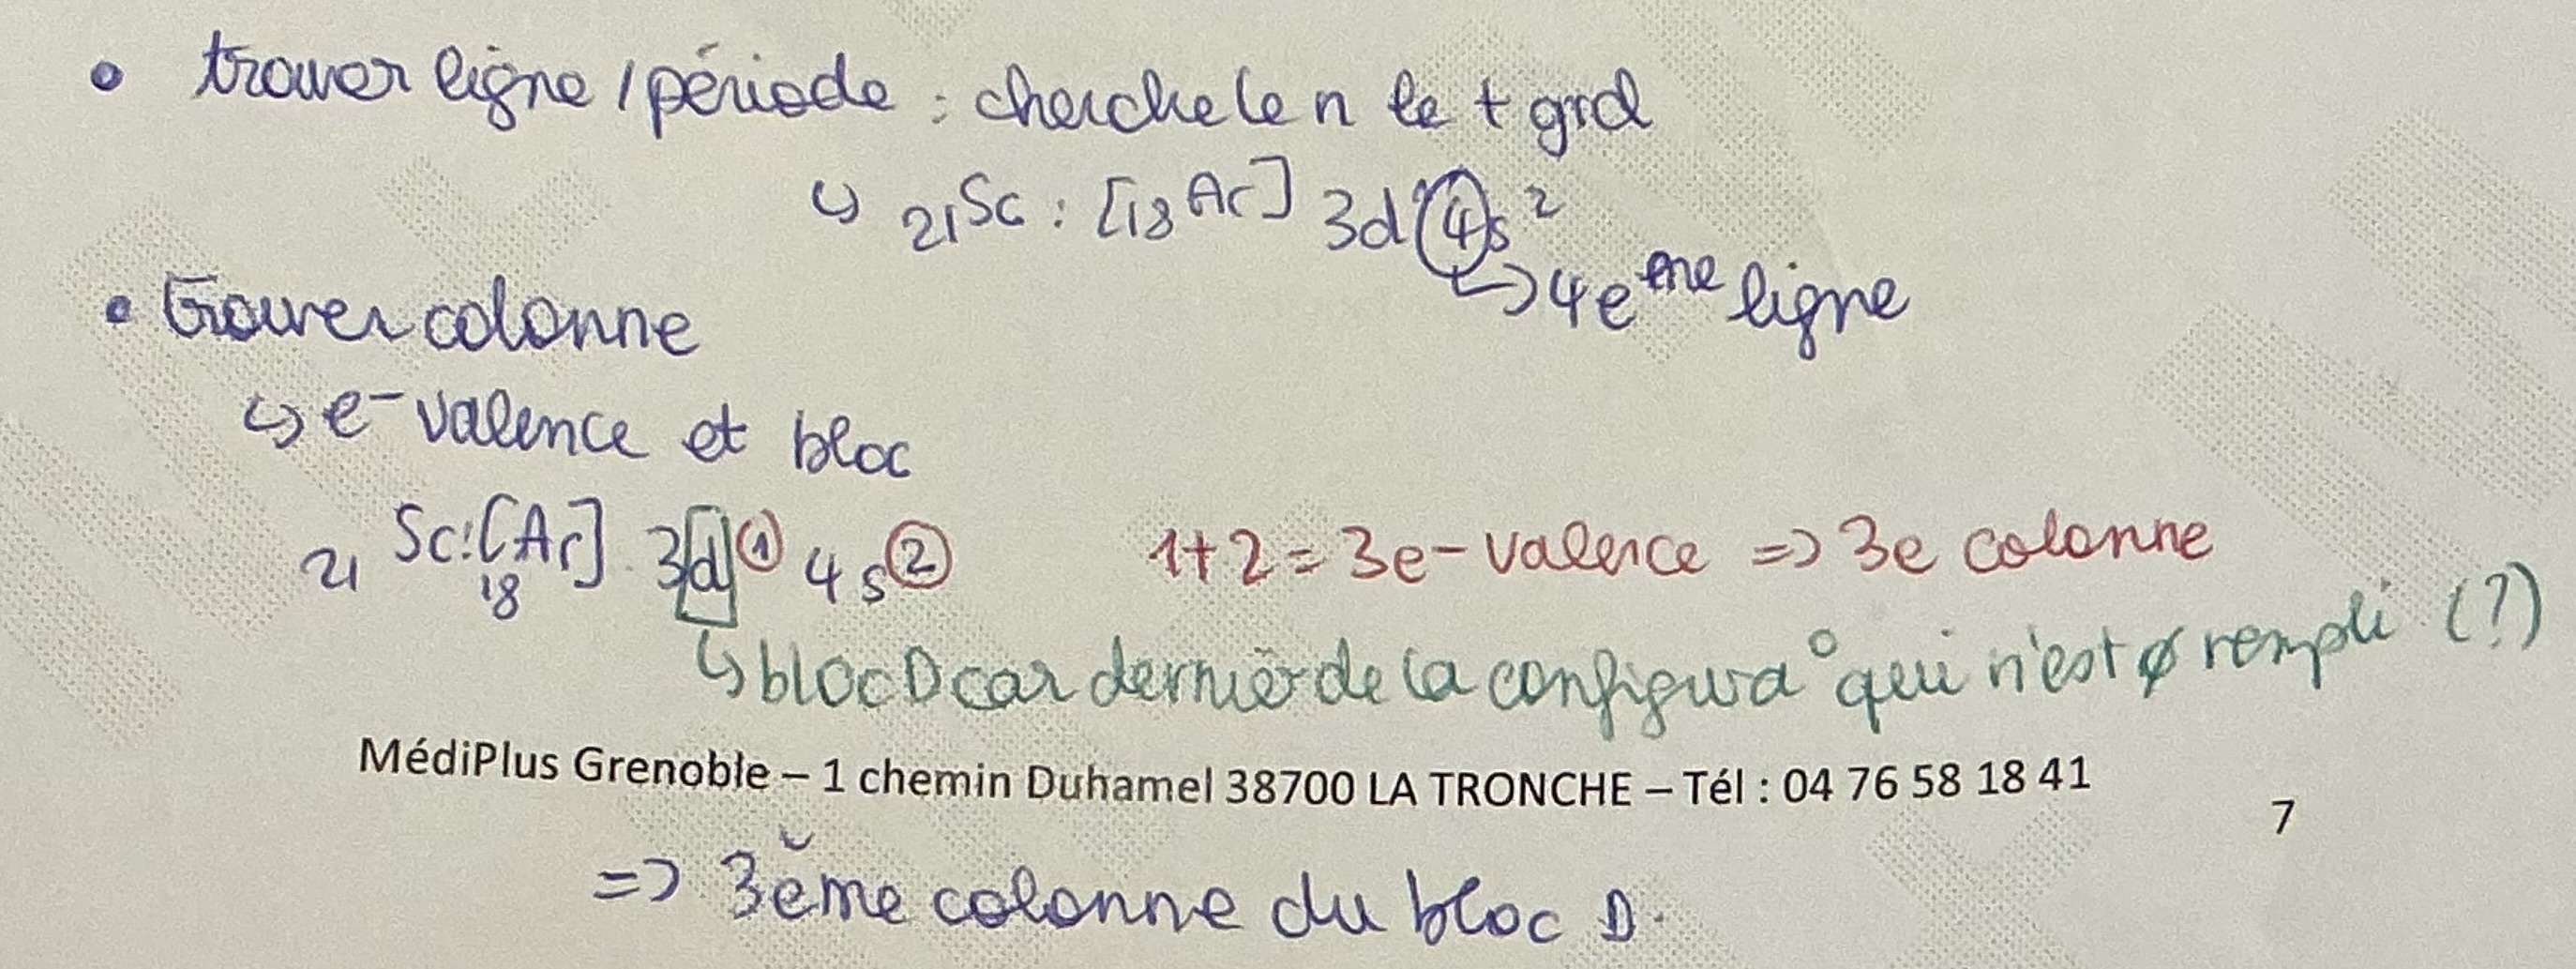 • trouver ligne / période : cherche le n le + grd
↳ 21Sc : [18Ar] 3d¹ 4s²
↳ 4eme ligne
• trouver colonne
↳ e- valence et bloc
21 Sc : [Ar]18 3d① 4s② 1+2 = 3e- valence => 3e colonne
↳ bloc D car dernier de la configura° qui n'est ø rempli (?)
MédiPlus Grenoble – 1 chemin Duhamel 38700 LA TRONCHE – Tél : 04 76 58 18 41
7
=> 3ème colonne du bloc D.